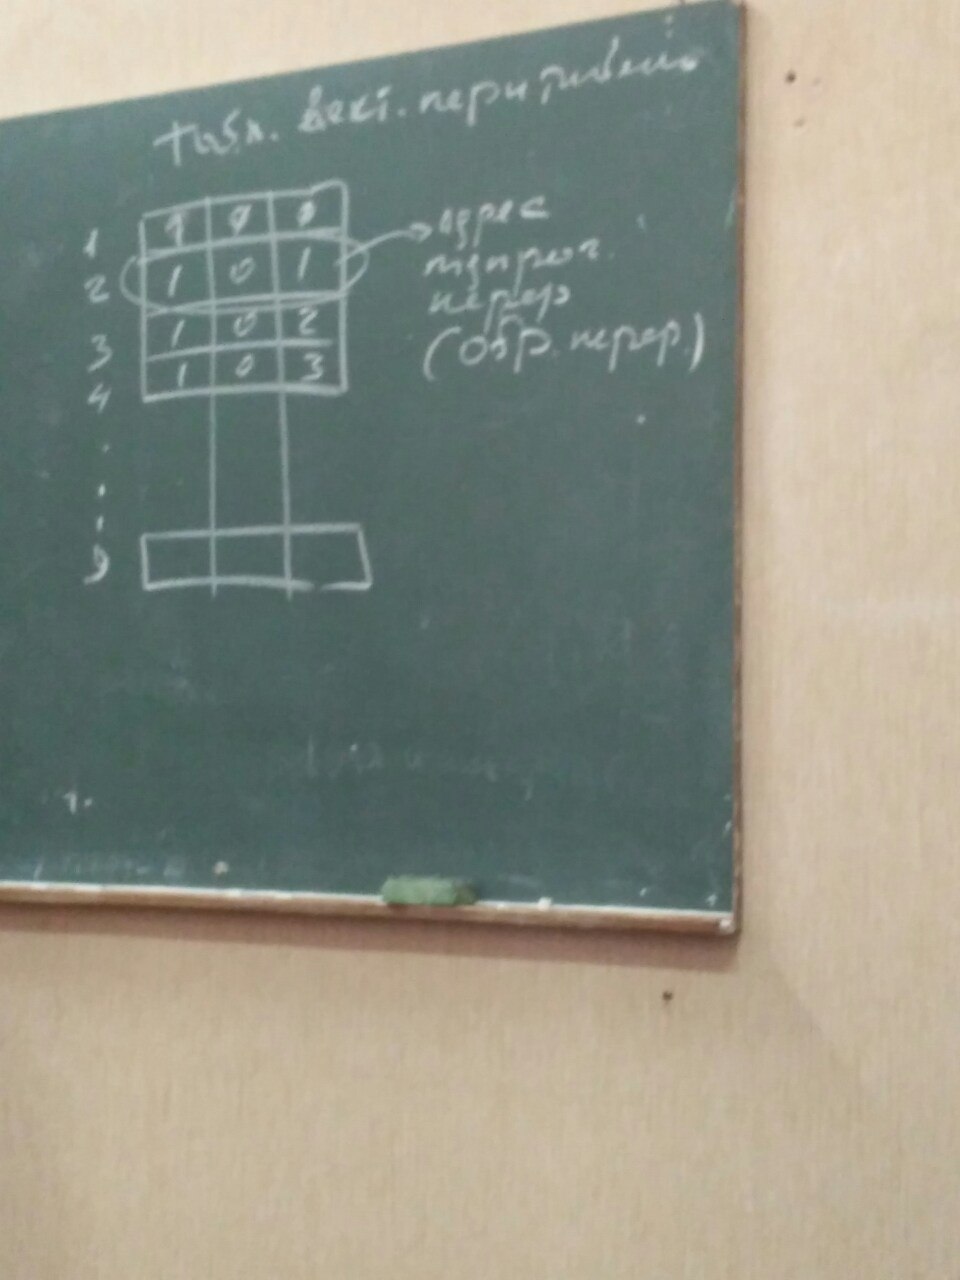 табл. вект. перу
1
2 1 0 1
3 1 0 2
4 1 0 3
адрес
підпрог.
перер
(обр. перер.)